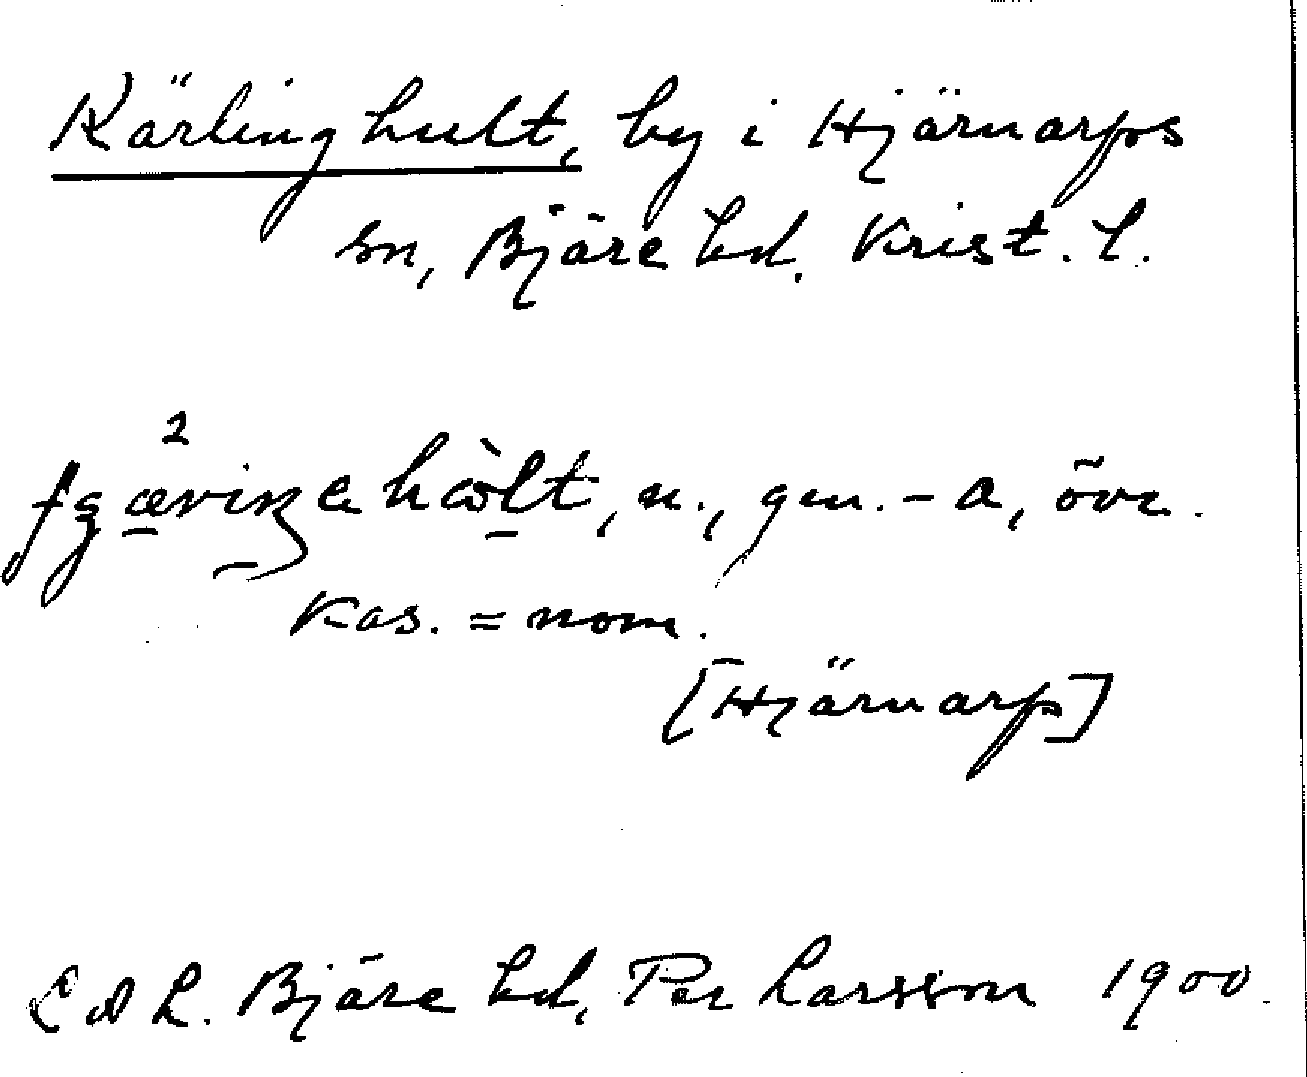 Kärlinghult, by i Hjärnarps
sn, Bjäre hd. Krist. l.
hòlt, n., gen. -a, övr.
kas. = nom.
[Hjärnarp]
L d L. Bjäre hd, Per Larsson 1900.